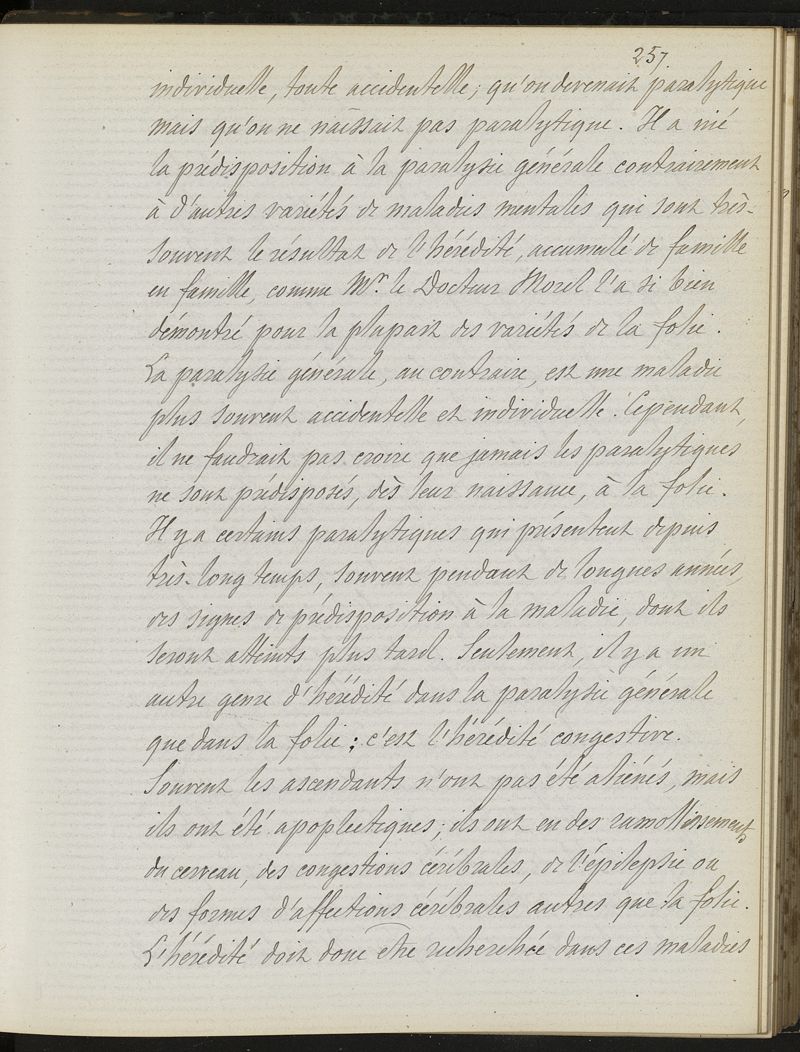 257
individuelle, toute accidentelle; qu'on devenait paralytique
mais qu'on ne naissait pas paralytique. Il a nié
la prédisposition à la paralysie générale contrairement
à d'autres variétés de maladies mentales qui sont très-
souvent le résultat de l'hérédité, accumulé de famille
en famille, comme Mr. le Docteur Morel l'a si bien
démontré pour la plupart des variétés de la folie.
La paralysie générale, au contraire, est une maladie
plus souvent accidentelle et individuelle. Cependant,
il ne faudrait pas croire que jamais les paralytiques
ne sont prédisposés, dès leur naissance, à la folie.
Il y a certains paralytiques qui présentent depuis
très-long temps, souvent pendant de longues années,
des signes de prédisposition à la maladie, dont ils
seront atteints plus tard. Seulement, il y a un
autre genre d'hérédité dans la paralysie générale
que dans la folie: c'est l'hérédité congestive.
Souvent les ascendants n'ont pas été aliénés, mais
ils ont été apoplectiques; ils ont eu des ramollissements
du cerveau, des congestions cérébrales, de l'épilepsie ou
des formes d'affections cérébrales autres que la folie.
L'hérédité doit donc être recherchée dans ces maladies